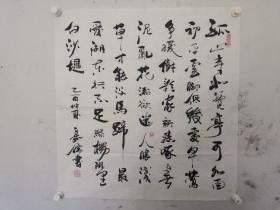 孤山寺北賈亭西水面
初平雲腳低幾處早鶯
爭暖樹誰家新燕啄春
泥亂花漸欲迷人眼淺
草才能沒馬蹄最
愛湖東行不足綠楊陰里
白沙堤